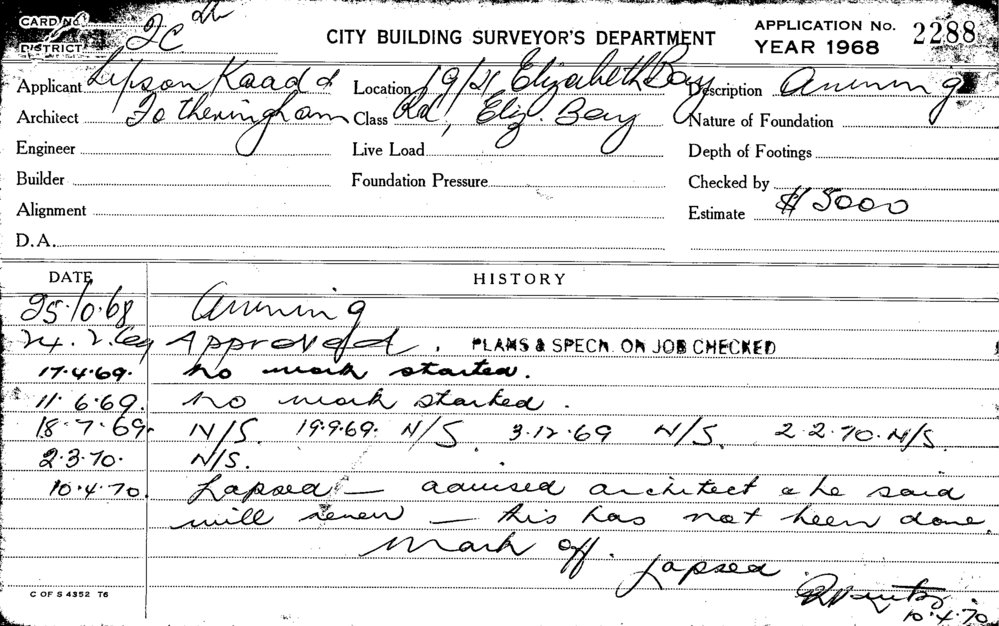 CARD No. CITY BUILDING SURVEYOR'S DEPARTMENT APPLICATION No. 2288
DISTRICT 2C YEAR 1968
Applicant Lipson Kaad & Location 19/21 Elizabeth Bay Description Awning
Architect Fotheringham Class Rd, Eliz. Bay Nature of Foundation
Engineer Live Load Depth of Footings
Builder Foundation Pressure Checked by
Alignment Estimate $15000
D.A.
DATE HISTORY
25.10.68 Awning
24.2.69 Approved. PLANS & SPECN. ON JOB CHECKED
17.4.69. No work started.
11.6.69. No work started.
18.7.69. N/S. 19.9.69. N/S 3.12.69 N/S. 2.2.70. N/S
2.3.70. N/S.
10.4.70. Lapsed — advised architect & he said
will renew — this has not been done.
Mark off. Lapsed
C OF S 4352 T6
10.4.70